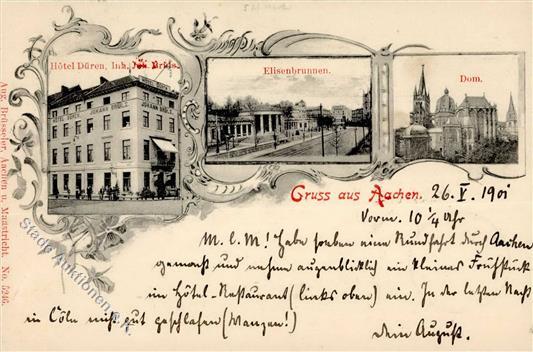 Hôtel Düren, Inh. Joh. Brüls.
Elisenbrunnen.
Dom.
HÔTEL DÜREN. JOHANN BRÜLS
Aug. Brüsseler, Aachen u. Maastricht. No. 5246.
Gruss aus Aachen. 26. I. 1901
Vorm. 10 1/4 Uhr
M. l. M.! Habe soeben eine Rundfahrt durch Aachen
gemacht und nehme augenblicklich ein kleines Frühstück
im Hôtel-Restaurant (links oben) ein. In der letzten Nacht
in Cöln nicht gut geschlafen (Wanzen!)
Dein August.